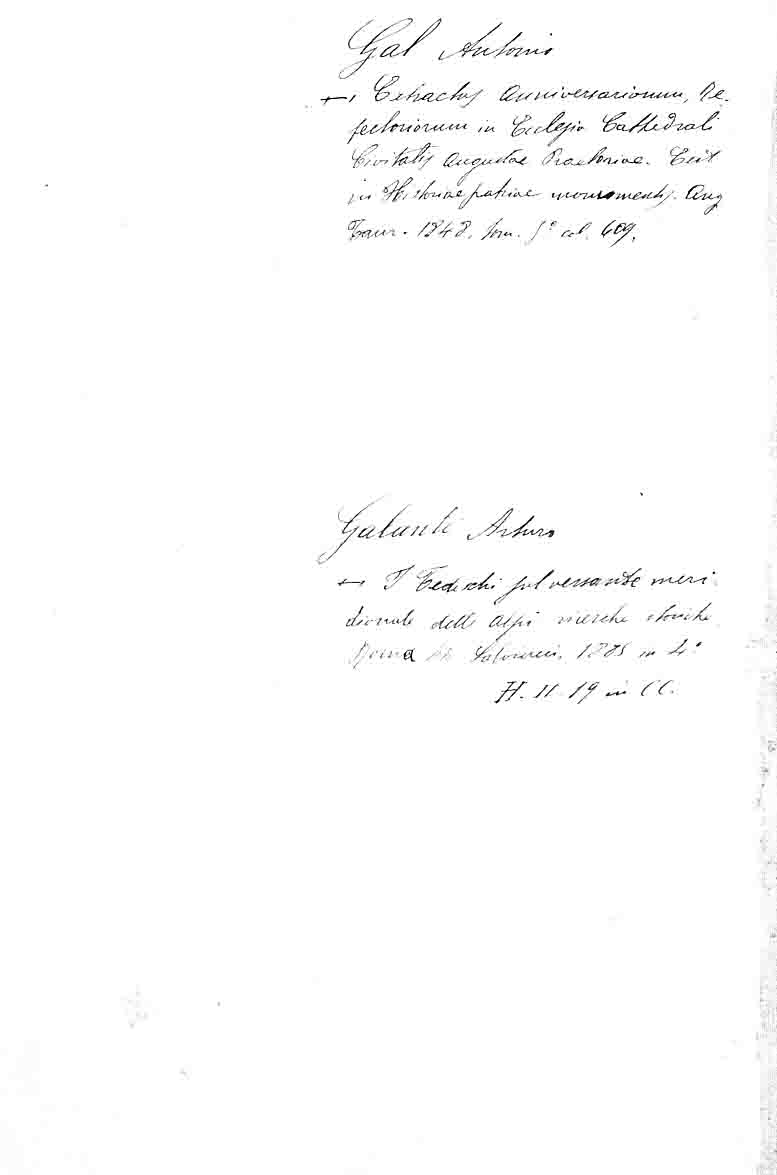 Gal Antonio
Extractus Anniversariorum, Re-
fectoriorum in Ecclesia Cathedrali
Civitatis Augustae Praetoriae. Exit
in Historiae patriae monumentis. Aug
Taur. 1848. tom. 5° col. 609.
Galanti Arturo
I Tedeschi sul versante meri
dionale delle Alpi ricerche storiche
Roma 1885 in 4°
H. II. 19 in CC.